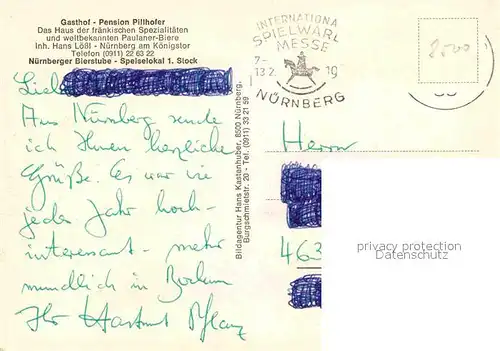 Gasthof - Pension Pillhofer
Das Haus der fränkischen Spezialitäten
und weltbekannten Paulaner-Biere
Inh. Hans Lößl - Nürnberg am Königstor
Telefon (0911) 22 63 22
Nürnberger Bierstube - Speiselokal 1. Stock
Lieb
Aus Nürnberg sende
ich Ihnen herzliche
Grüße. Es war wie
jedes Jahr hoch-
interessant - mehr
mündlich in Bochum
Ihr Hartmut
Bildagentur Hans Kastanhuber, 8500 Nürnberg,
Burgschmietstr. 20 - Tel. (0911) 33 21 59
INTERNATIONA
SPIELWARE
MESSE
7-
13.2 19
NÜRNBERG
8500
Herrn
463
privacy protection
Datenschutz